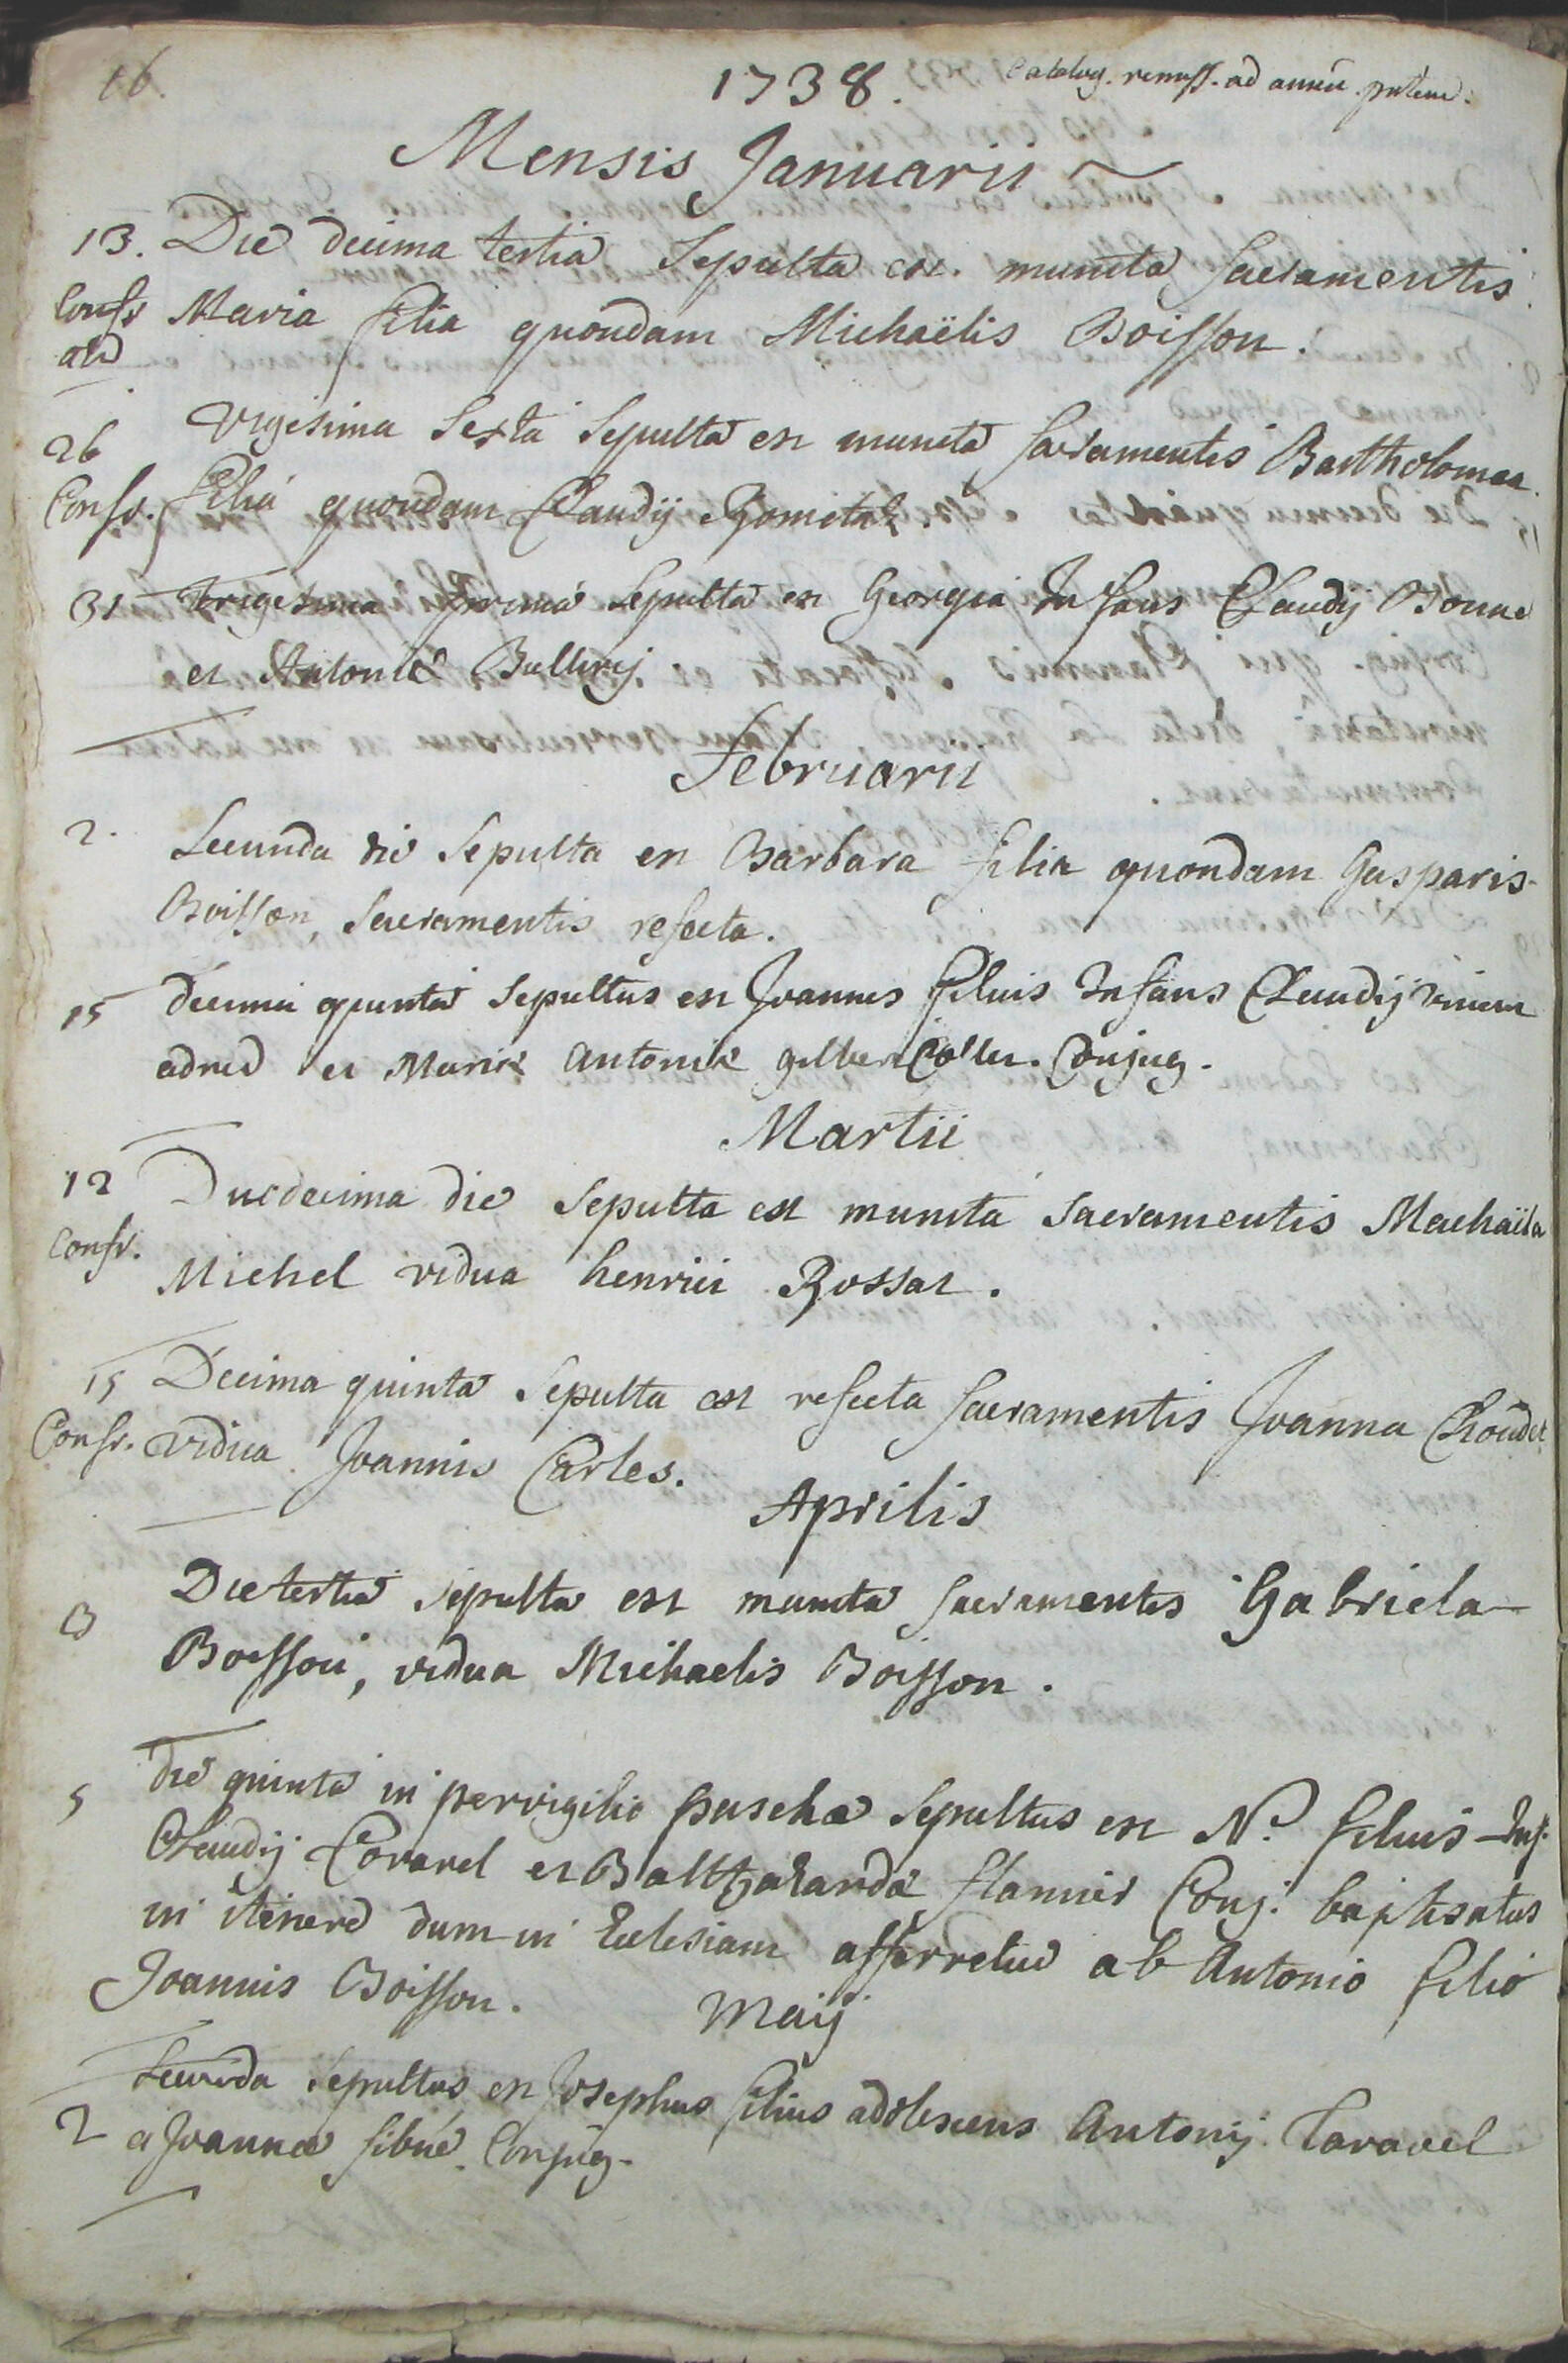 16.
1738. Catalog. remiss. ad annū
Mensis Januarii
13. Die decima tertia Sepulta est. munita Sacramentis
Confr Maria filia quondam Michaëlis Boisson.
26 Vigesima Sexta Sepulta est munita Sacramentis Bartholomea
Confr. filia quondam Claudij
31 Trigesima prima Sepulta est Georgia Infans Claudij Bonne
et Antoniæ
Februarii
2. Secunda die Sepulta est Barbara filia quondam Gasparis
Boisson, Sacramentis refecta.
15 decima quinta Sepultus est Joannes filius Infans Claudij
et Mariæ Antoniæ Conjug.
Martii
12 Duodecima die Sepulta est munita Sacramentis Machaëla
Confr. Michel vidua henrici Rossat.
15 Decima quinta Sepulta est refecta Sacramentis Joanna Choudet
Confr. vidua Joannis Carles.
Aprilis
3 Die tertia Sepulta est munita Sacramentis Gabriela
Boisson, vidua Michaelis Boisson.
5 die quinta in pervigilio paschæ Sepultus est N. filius Inf.
Claudij Coravel et Conj. baptisatus
in itinere dum in Ecclesiam afferretur ab Antonio filio
Joannis Boisson.
Maij
Secunda Sepultus est Josephus filius adolescens Antonij Taravel
2 et Joannæ Conjug.